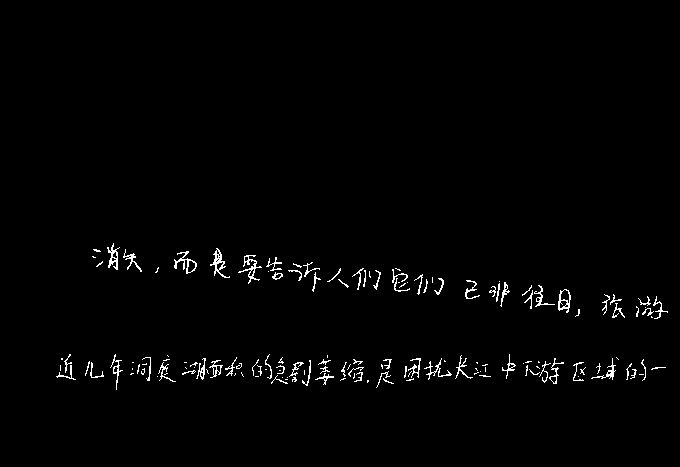 消失,而是要告诉人们它们已非往日,旅游
近几年洞庭湖面积的急剧萎缩,是困扰长江中下游区域的一